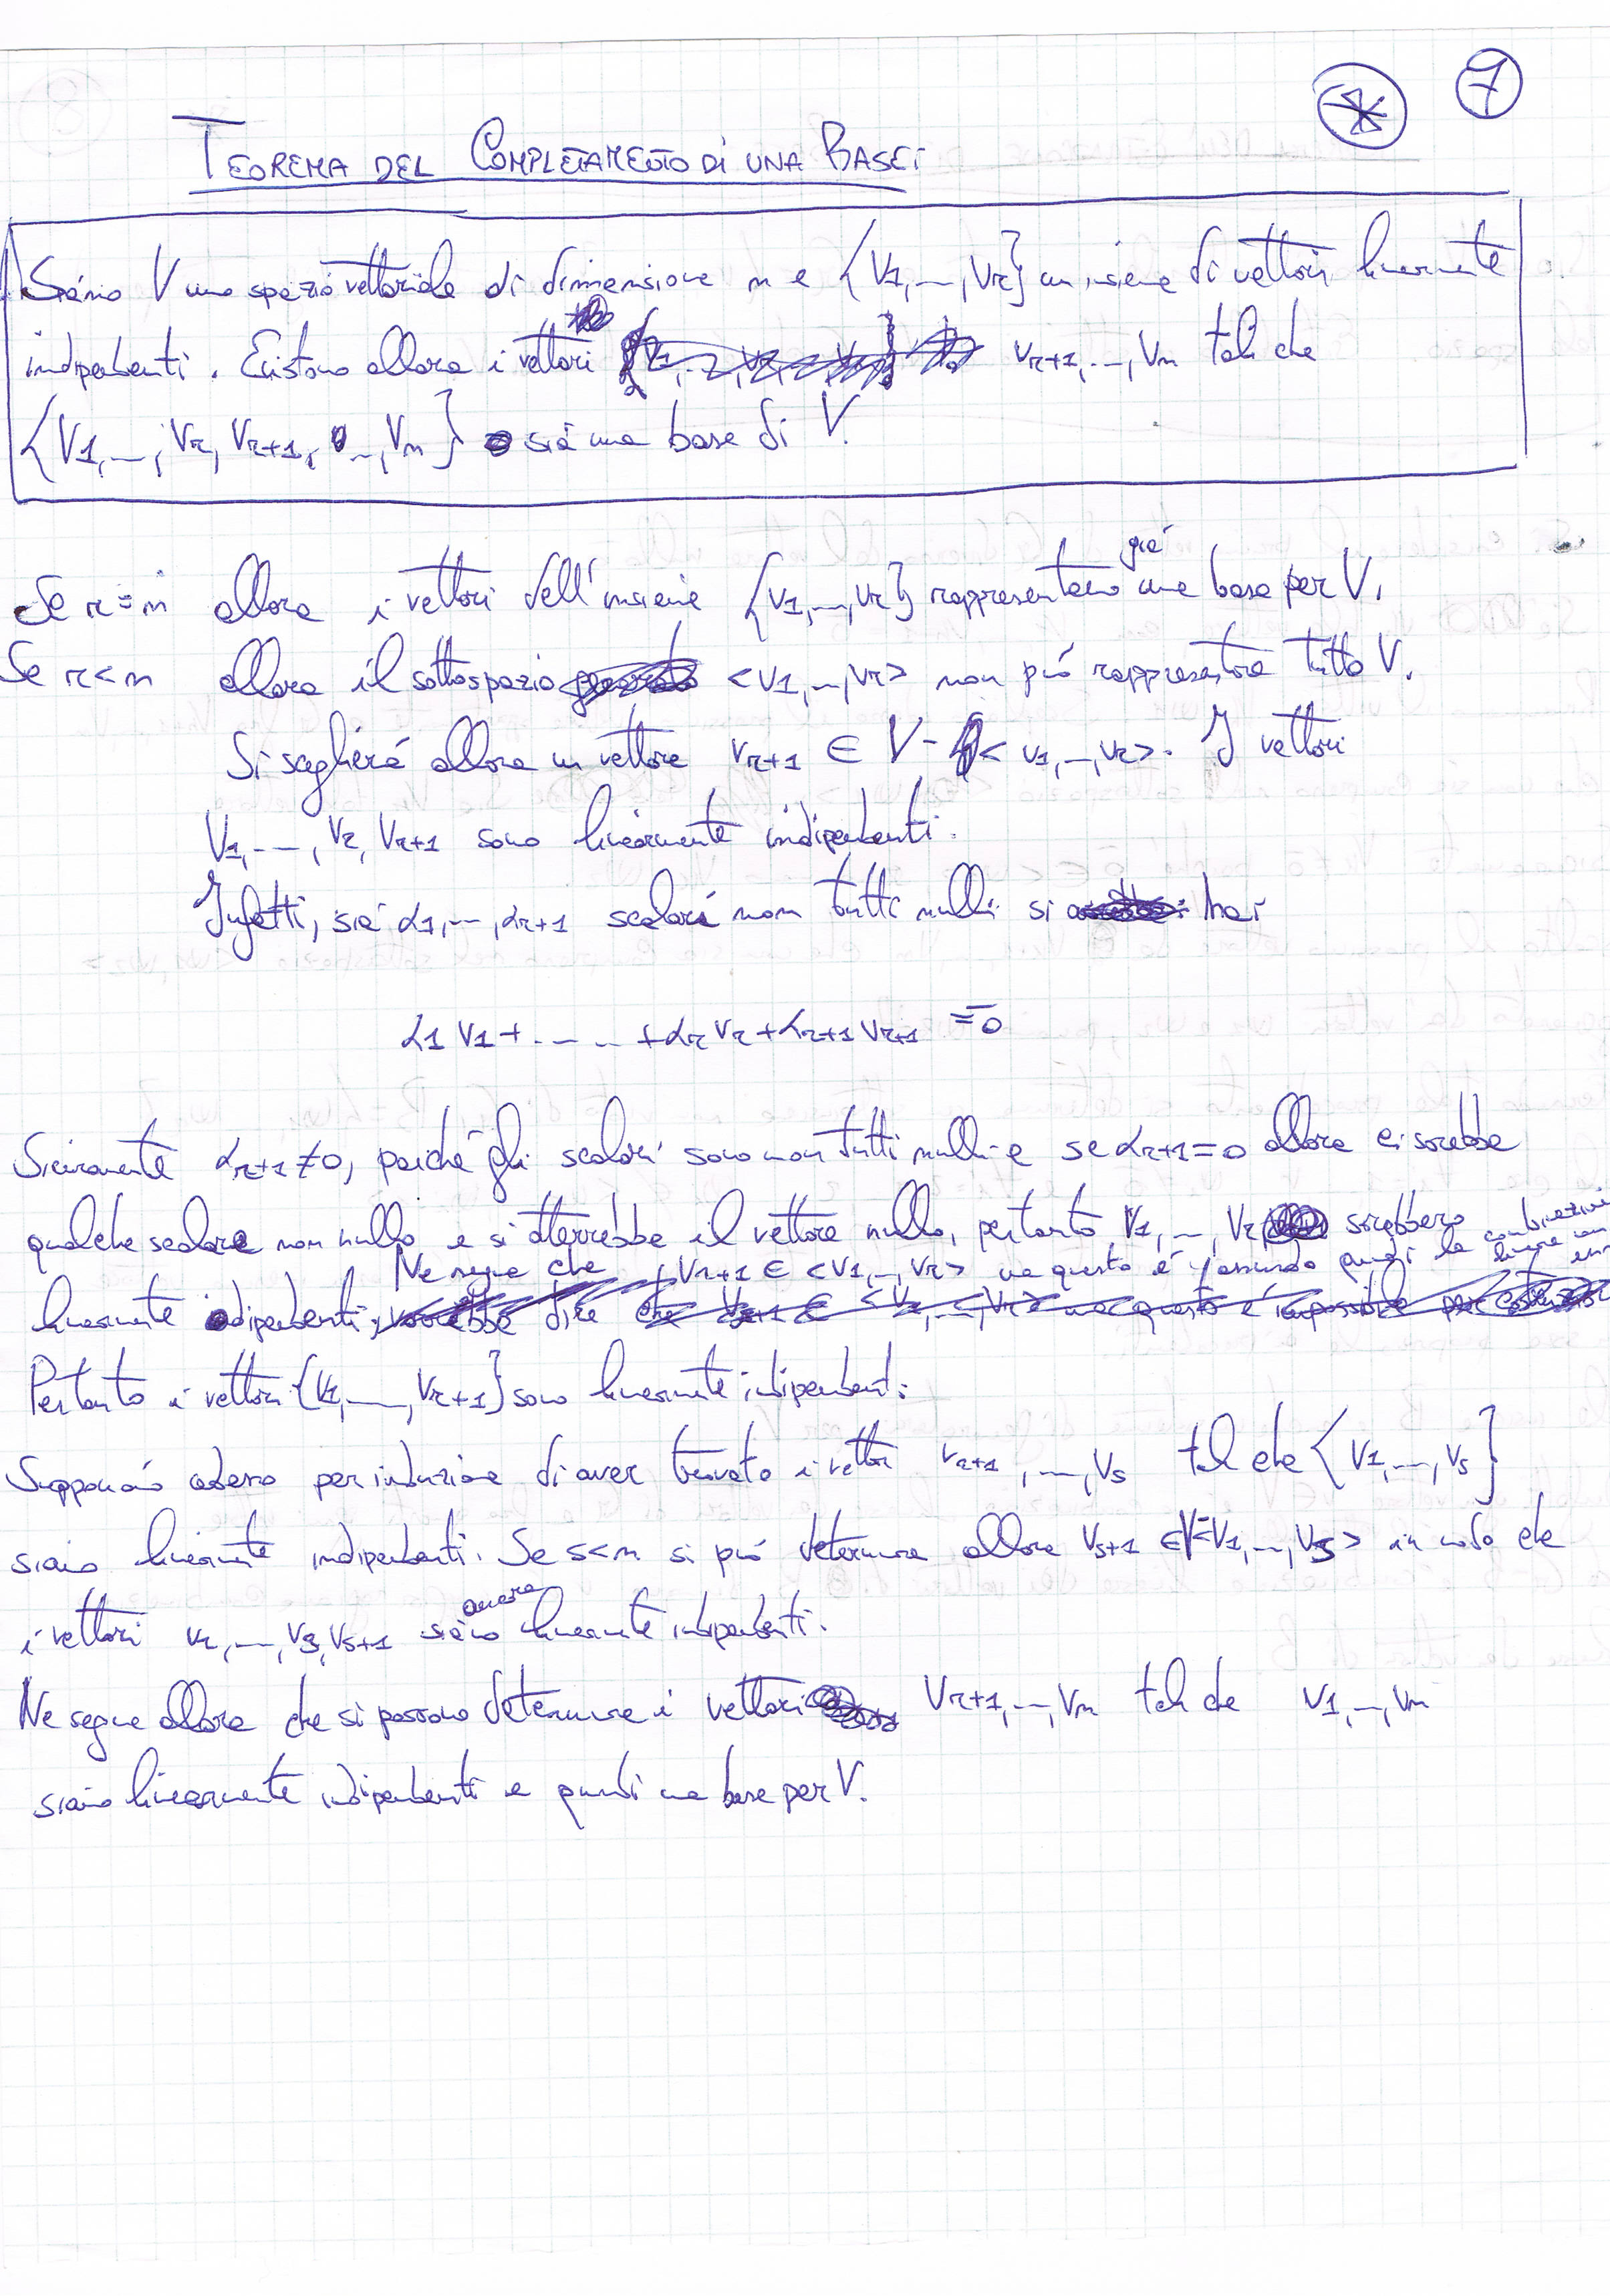 * 7
TEOREMA DEL COMPLETAMENTO DI UNA BASE:
Siano V uno spazio vettoriale di dimensione n e {V1,...,Vr} un insieme di vettori linearmente
indipendenti. Esistono allora i vettori Vr+1,...,Vn tali che
{V1,...,Vr,Vr+1,...,Vn} sia una base di V.
Se r=n allora i vettori dell'insieme {V1,...,Vr} rappresentano già una base per V.
Se r<n allora il sottospazio <V1,...,Vr> non può rappresentare tutto V.
Si sceglierà allora un vettore Vr+1 ∈ V-<V1,...,Vr>. I vettori
V1,...,Vr,Vr+1 sono linearmente indipendenti.
Infatti, sia α1,...,αr+1 scalari non tutti nulli si hai
α1V1+.....+αrVr+αr+1Vr+1 = 0
Sicuramente αr+1≠0, poiché gli scalari sono non tutti nulli e se αr+1=0 allora ci sarebbe
qualche scalare non nullo e si otterrebbe il vettore nullo, pertanto V1,...,Vr sarebbero
linearmente dipendenti, Ne segue che Vr+1 ∈ <V1,...,Vr> ma questo è assurdo quindi la combinazione lineare
Pertanto i vettori {V1,...,Vr+1} sono linearmente indipendenti.
Supponiamo adesso per induzione di aver trovato i vettori Vr+1,...,Vs tali che {V1,...,Vs}
siano linearmente indipendenti. Se s<n si può determinare allora Vs+1 ∈ V-<V1,...,Vs> in modo che
i vettori V1,...,Vs,Vs+1 siano ancora linearmente indipendenti.
Ne segue allora che si possono determinare i vettori Vr+1,...,Vn tali che V1,...,Vn
siano linearmente indipendenti e quindi una base per V.